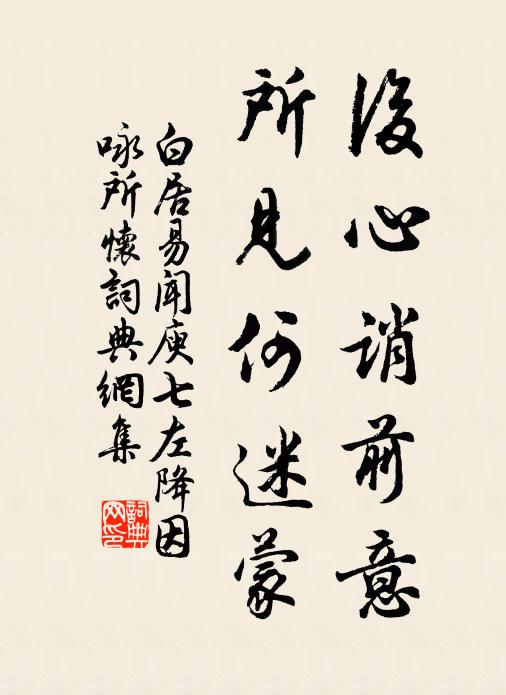 後心誚前意
所見何迷蒙
白居易聞庾七左降因
咏所懷詞典網集
詞典网印